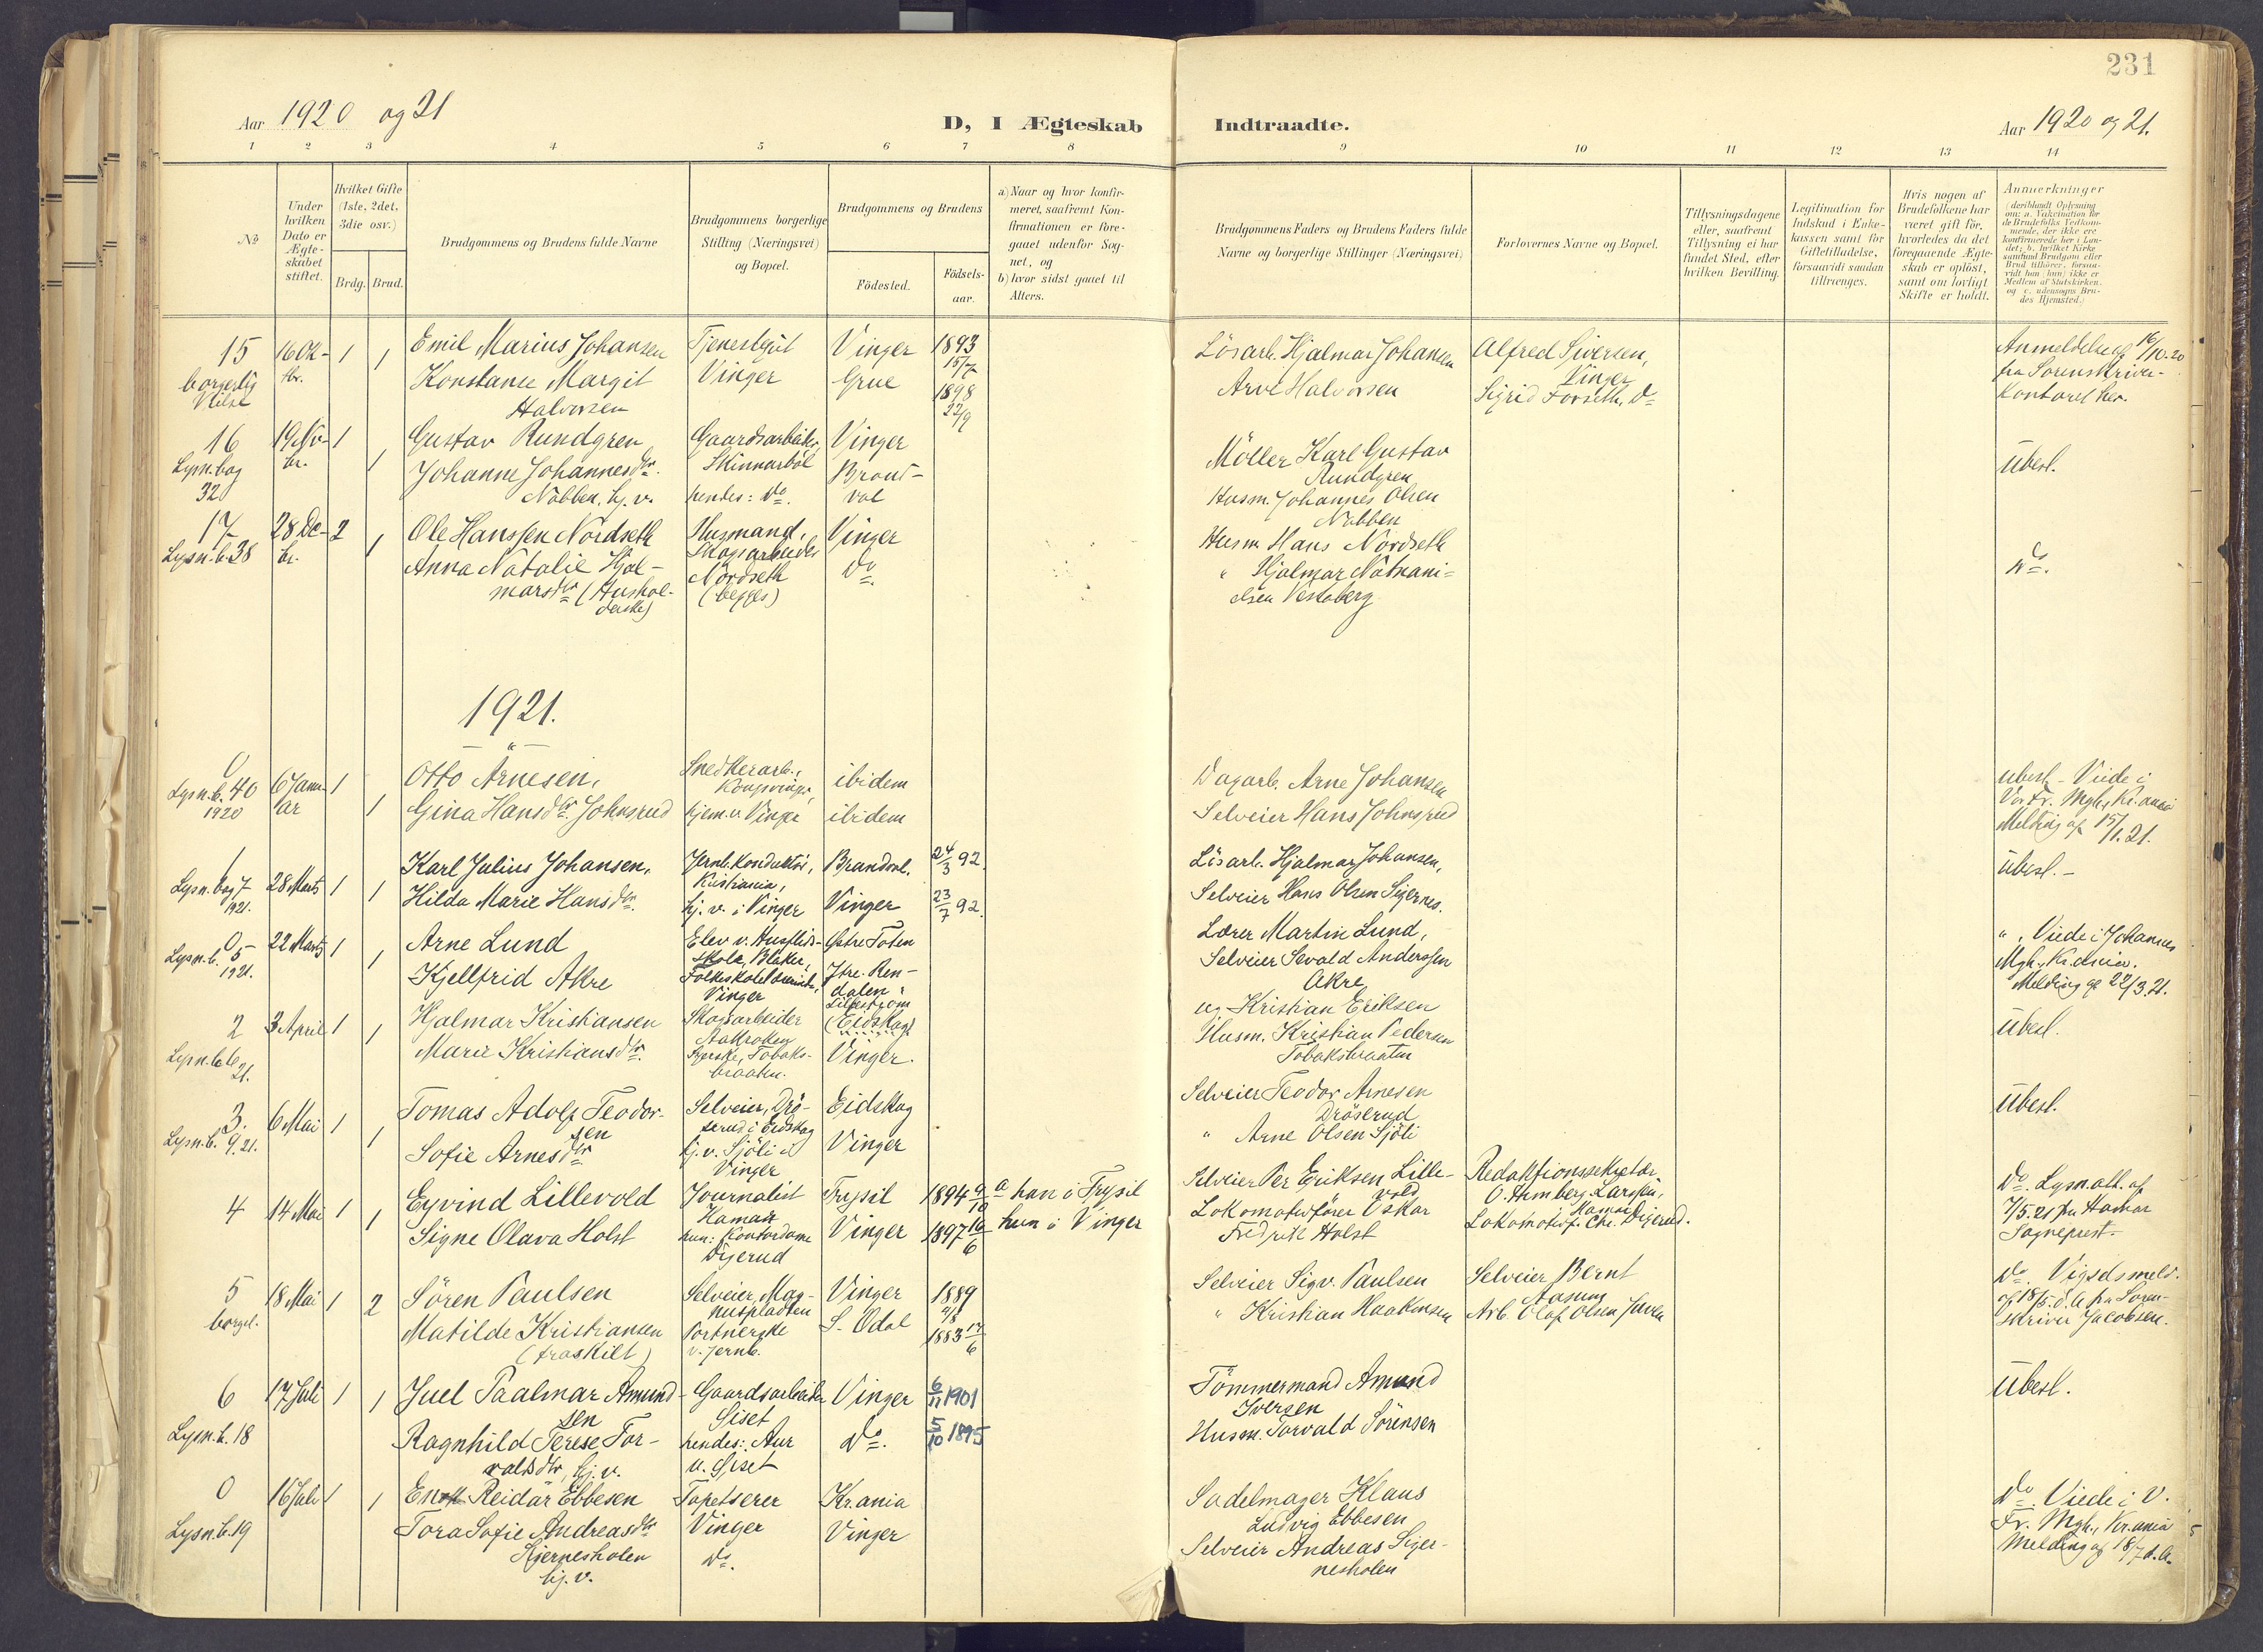 231
Aar 1920 og 21
D, I Ægteskab Indtraadte.
Aar 1920 og 21.
1 2 3 4 5 6 7 8 9 10 11 12 13 14
No
Under hvilken Dato er Ægteskabet stiftet.
Hvilket Gifte (1ste, 2det, 3die osv.)
Brdg. Brud.
Brudgommens og Brudens fulde Navne
Brudgommens borgerlige Stilling (Næringsvei) og Bopæl.
Brudgommens og Brudens
Födested.
Födsels-aar.
a) Naar og hvor konfirmeret, saafremt Konfirmationen er foregaaet udenfor Sognet, og
b) hvor sidst gaaet til Alters.
Brudgommens Faders og Brudens Faders fulde Navne og borgerlige Stillinger (Næringsvei)
Forlovernes Navne og Bopæl.
Tillysningsdagene eller, saafremt Tillysning ei har fundet Sted, efter hvilken Bevilling.
Legitimation for Indskud i Enkekassen samt for Giftetilladelse, forsaavidt saadan tiltrænges.
Hvis nogen af Brudefolkene har været gift för, hvorledes da det foregaaende Ægteskab er oplöst, samt om lovligt Skifte er holdt.
Anmerkninger (deriblandt Oplysning om: a. Vakcination for de Brudefolks Vedkommende, der ikke ere konfirmerede her i Landet; b. hvilket Kirkesamfund Brudgom eller Brud tilhörer, forsaavidt han (hun) ikke er Medlem af Statskirken, og c. udensogns Brudes Hjemsted.)
15 borgerlig Vielse
16 Ok-tbr.
1 1
Emil Marius Johansen
Konstanse Margit
Halvorsen
Tjenestgut
Vinger
Vinger
Grue
1893 15/7
1898 22/9
Lösarb. Hjalmar Johansen
Arve Halvorsen
Alfred Siversen,
Vinger
Sigrid Forseth, Do
Anmeldelse af 16/10.20
fra Sorenskriver-
kontoret her.
16 Lysn.bog 32
19 Nv-br.
1 1
Gustav Rundgren
Johanne Johannesdtr.
Nabben, hj. v.
Gaardsarbeider,
Skinnarböl
hendes: Do.
Vinger
Brand-
val
Möller Karl Gustav
Rundgren
Husm. Johannes Olsen
Nabben
Ubesl.
17 Lysn.b. 38
28 De-br.
2 1
Ole Hanssen Nordseth
Anna Natalie Hjal-
marsdtr (Hushol-
derske)
Husmand,
Skogsarbeider
Nordseth
(begges)
Vinger
Do.
Husm Hans Nordseth
" Hjalmar Natnani-
elsen Vestaberg
Do.
1921.
0 Lysn.b. 40 1920
6 Janu-ar
1 1
Otto Arnesen,
Gina Hansdtr. Johnsrud
Snedkerarb.,
Kongsvinger,
hjem.v. Vinger
ibidem
ibidem
Dagarb. Arne Johansen
Selveier Hans Johnsrud
Ubesl. - Viede i
Vor Fr. Mgh., Kr.ania
Melding af 15/1.21.
1 Lysn.bog 7 1921.
28 Marts
1 1
Karl Julius Johansen,
Hilda Marie Hansdtr.
Jernb. konduktör,
Kristiania,
hj. v. i Vinger
Brandval.
Vinger
24/3 92.
23/7 92.
Lösarb. Hjalmar Johansen,
Selveier Hans Olsen Sigernes.
Ubesl. -
0 Lysn.b. 5 1921.
22 Marts
1 1
Arne Lund
Kjellfrid Akre
Elev v. Husflids-
skole, Blaker,
Vinger
Östre Toten
Ytre Ren-
dalen
Lærer Martin Lund,
Selveier Sevald Anderssen
Akre
", Viede i Johannes
Mgh., Kr.ania.
Melding af 22/3.21.
2 Lysn.b. 6 21.
3 April
1 1
Hjalmar Kristiansen
Marie Kristiansdtr.
Skogsarbeider
Syerske, Tobaks-
braaten.
Lillestrøm
(Eidskog)
Vinger.
ug. Kristian Eriksen
Husm. Kristian Pedersen
Tobaksbraaten
Ubesl.
3. Lysn.b. 9.21.
6 Mai
1 1
Tomas Adolf Teodor-
sen
Sofie Arnesdtr
Selveier, Drö-
serud i Eidskog
hj. v. Sjöli i
Vinger
Eidskog
Vinger
Selveier Teodor Arnesen
Dröserud
" Arne Olsen Sjöli
Ubesl.
4
14 Mai
1 1
Eyvind Lillevold
Signe Olava Holst
Journalist
Hamar
hun: Kontordame
Digerud
Trysil
Vinger
1894 9/10
1897 16/6
a han i Trysil
hun i Vinger
Selveier Per Eriksen Lille-
vold
Lokomotivförer Oskar
Fredrik Holst
Redaktionssekretær
Hamar
Lokomotivf. Chr. Digerud.
Do. Lysn.att. af
7/5.21 fra Hamar
Sogneprest.
5 borgel.
18 Mai
1 2
Sören Paulsen
Matilde Kristiansen
(fraskilt)
Selveier, Mag-
nuspladsen
Portnerske
v. Jernb.
Vinger
S. Odal
1889
1883 17/6
Selveier Sigv. Paulsen
" Kristian Haakensen
Selveier Bernt
Aasum
Arb. Olaf Olsen
Do. Vigselsmeld.
af 18/5. d.A. fra Soren-
skriver Jacobsen.
6 Lysn.b. 18
17 Juli
1 1
Juel Paalmar Amund-
sen
Ragnhild Terese Tor-
valdsdtr, hj. v.
Gaardsarbeider
Siset
hendes: Aur
u. Siset
Vinger
Do.
6/11 1901
5/10 1895
Tömmermand Amund
Iversen
Husm. Torvald Sörensen
Ubesl.
0 Lysn.b. 19
16 Juli
1 1
Reidar Ebbesen
Tora Sofie Andreasdtr
hj. v.
Tapetserer
Vinger
Do.
Kr.ania
Vinger
Sadelmager Klaus
Ludvig Ebbesen
Selveier Andreas Siger-
nesholen
Do. Viede i V.
Fr. Mgh., Kr.ania
Melding af 18/7 d.A.